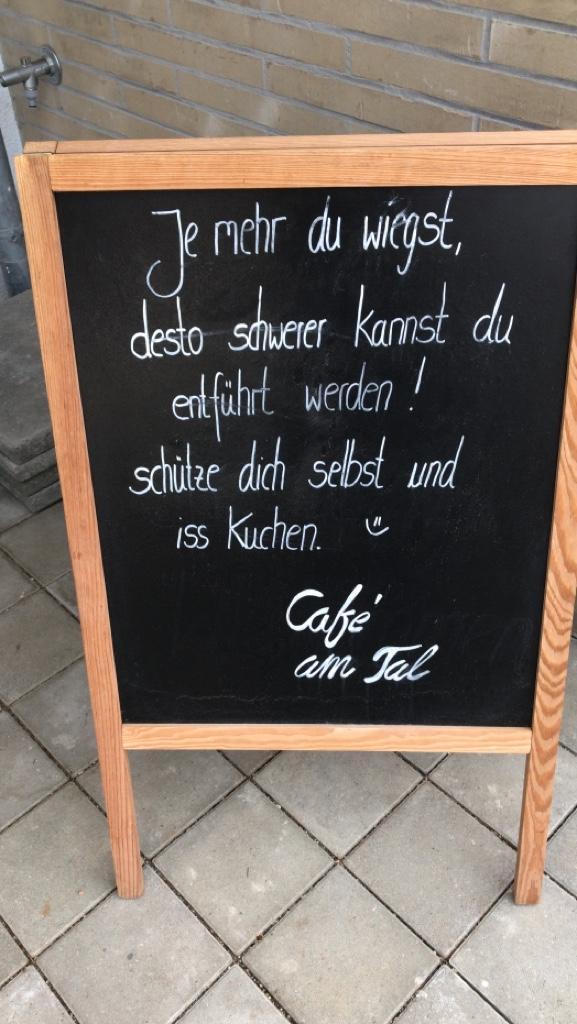 Je mehr du wiegst,
desto schwerer kannst du
entführt werden!
schütze dich selbst und
iss Kuchen. ü
Café
am Tal